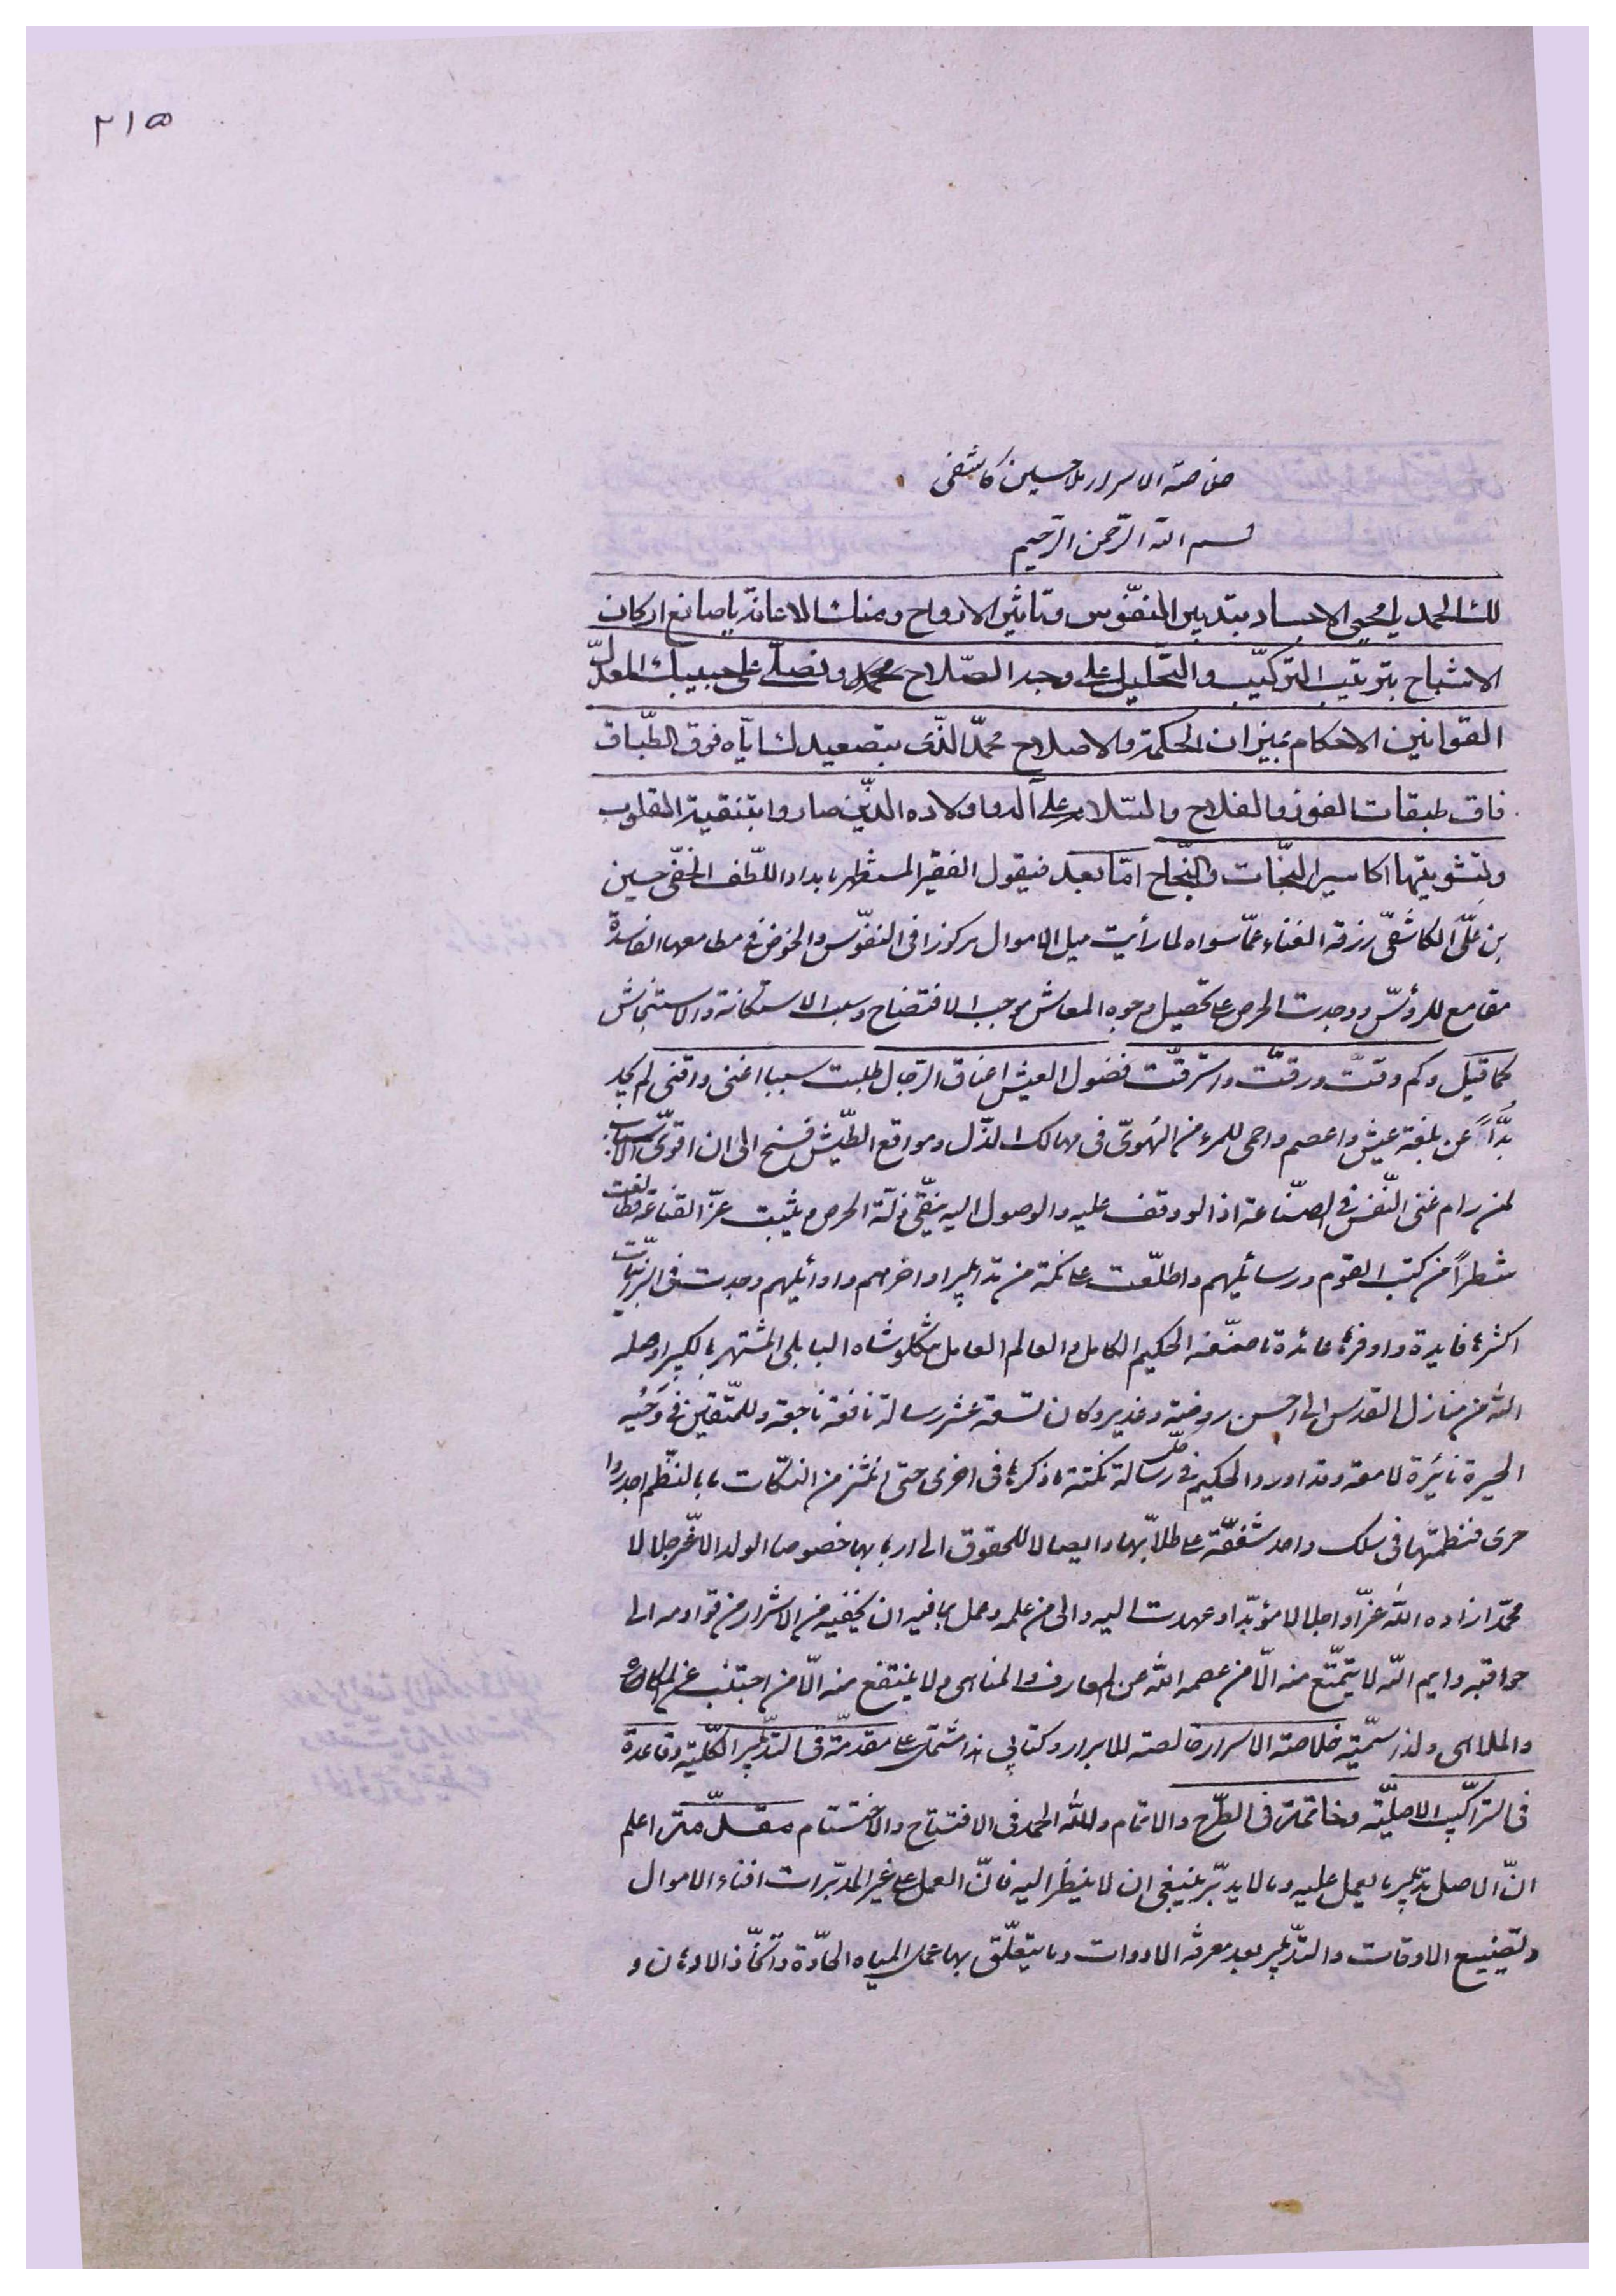 ٢١٥
خلاصة الاسرار ملا حسين كاشفى
بسم الله الرّحمن الرّحيم
لك الحمد يا محيى الاجساد بتدبير النفّوس وتاثير الارواح ومنك الاعانة يا صانع اركان
الاشباح بترتيب التركيّب والتحليل على وجه الصّلاح ونصلّى على حبيبك المعدّل
القوانين الاحكام بميزان الحكمة والاصلاح محمّد الذّى بتصعيدك ايّاه فوق الطّباق
فاق طبقات الفوز والفلاح والسّلام على آله واولاده الذّين صاروا بتنقية القلوب
وتشويتها اكاسير النجّات والنجّاح امّا بعد فيقول الفقير المستظهر بامداد اللّطف الخفّى حسين
بن علّى الكاشفّى رزقه الغناء عمّا سواه لما رأيت ميل الاموال مركوزا فى النفوّس والخوض فى مطامعها الفاسدة
مقامع للرؤسّ ووجدت الحرص على تحصيل وجوه المعاش موجب الافتضاح وسبب الاستكانة والاستنجاش
كما قيل وكم دقّت ورقّت واسترقّت فضول العيش اعناق الرّجال طلبت سببا اغنى واقنى لم يجد
بدّاً عن بلغة عيش واعصم واحمى للمرء من الهّوىّ فى مهالك الذّل ومواقع الطّيش فسنح الىّ ان اقوىّ الاسباب
لمن رام غنى النّفس فى الصنّاعة اذ الووقف عليه والوصول اليه ينّقى ذلّة الحرص ويثبت عزّ القناعة فطالعت
شطراً من كتب القوم ورسائلهم واطلّعت على نكتة من تدابير اواخرهم واوائلهم وجدت فى البرّانيّات
اكثرها فايدة واوفرها عائدة ما صنّفه الحكيم الكامل والعالم العامل شكلوشاه البابلى المشتهر بالكبير اوصله
الله من منازل القدس الى احسن روضة وغدير وكان تسعة عشر رسالة نافعة ناجعة وللمتّقين فى
الحيرة نائرة لامعة وقد اورد الحكيم فى كلّ رسالة نكتة ما ذكرها فى اخرى حتى انتثر من النكّات ما بالنظّم اجدر وا
حرى فنظمتها فى سلك واحد شفقّة على طلاّبها وايصالا للحقوق الى اربابها خصوصا الولد الاغّر جلالا
محمّد ازاده الله عزّا واجلالا مؤبّدا وعهدت اليه والى من علمه وعمل بما فيه ان يخفيه من الاشرار من قوادمه الى
حواقبه وايم الله لا يتمتّع منه الاّ من عصمه الله عن المعارف والمناهى ولا ينتفع منه الاّ من اجتنب عن المكاره
والملاهى ولذا سمّيته خلاصة الاسرار خالصة للابرار وكتابى هذا مشتمل على مقدمّة فى التدّابير الكلّية وقاعدة
فى التراكيّب الاصليّة وخاتمة فى الطّرح والاتمام ولله الحمد فى الافتتاح والاختتام مقدّمة اعلم
انّ الاصل تدّبير ما يعمل عليه وما لا يدبّر ينبغى ان لا ينظر اليه فانّ العمل على غير المدبّرات افناء الاموال
وتضييع الاوقات والتدّبير بعد معرفة الادوات وما يتعلّق بها عمل المياه الحادّة واتخّاذ الادهان و